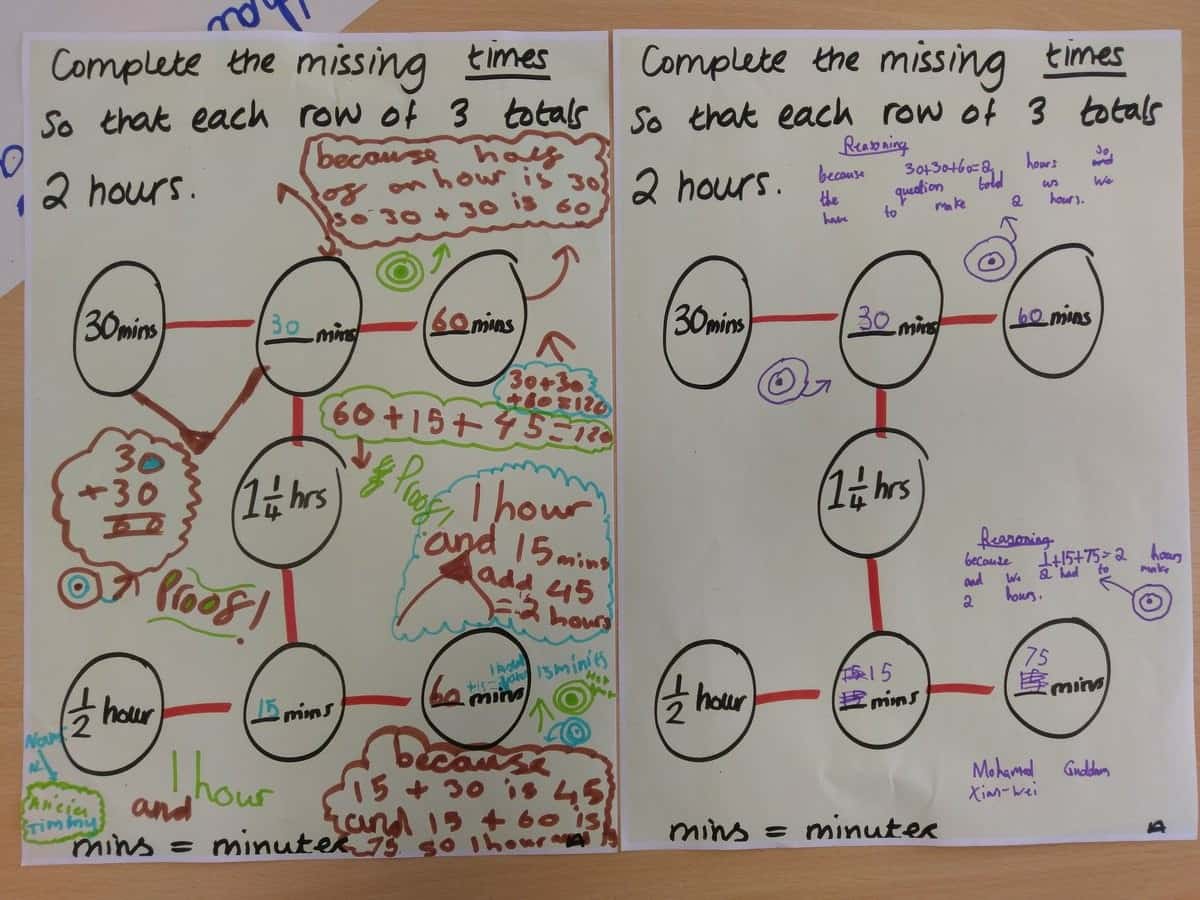 Complete the missing times
so that each row of 3 totals
2 hours.
because half
of an hour is 30
so 30 + 30 is 60
30 mins
30 mins
60 mins
30+30
+60=120
60 + 15 + 45 = 120
30
+ 30
60
1 1/4 hrs
Proof
1 hour
and 15 mins
add 45
= 2 hours
Proof!
1/2 hour
15 mins
60 mins
15 minites
1 hour
and
because
15 + 30 is 45
and 15 + 60 is
75 so 1 hour and 15
Timmy
mins = minutes
Complete the missing times
so that each row of 3 totals
2 hours.
Reasoning
because 30+30+60=2 hours so and
the question told us we
have to make 2 hours.
30 mins
30 mins
60 mins
1 1/4 hrs
Reasoning
because 1/2+15+75=2 hours
and we had to make
2 hours.
1/2 hour
15
mins
75
mins
Mohamed
Xian-Wei
mins = minutes